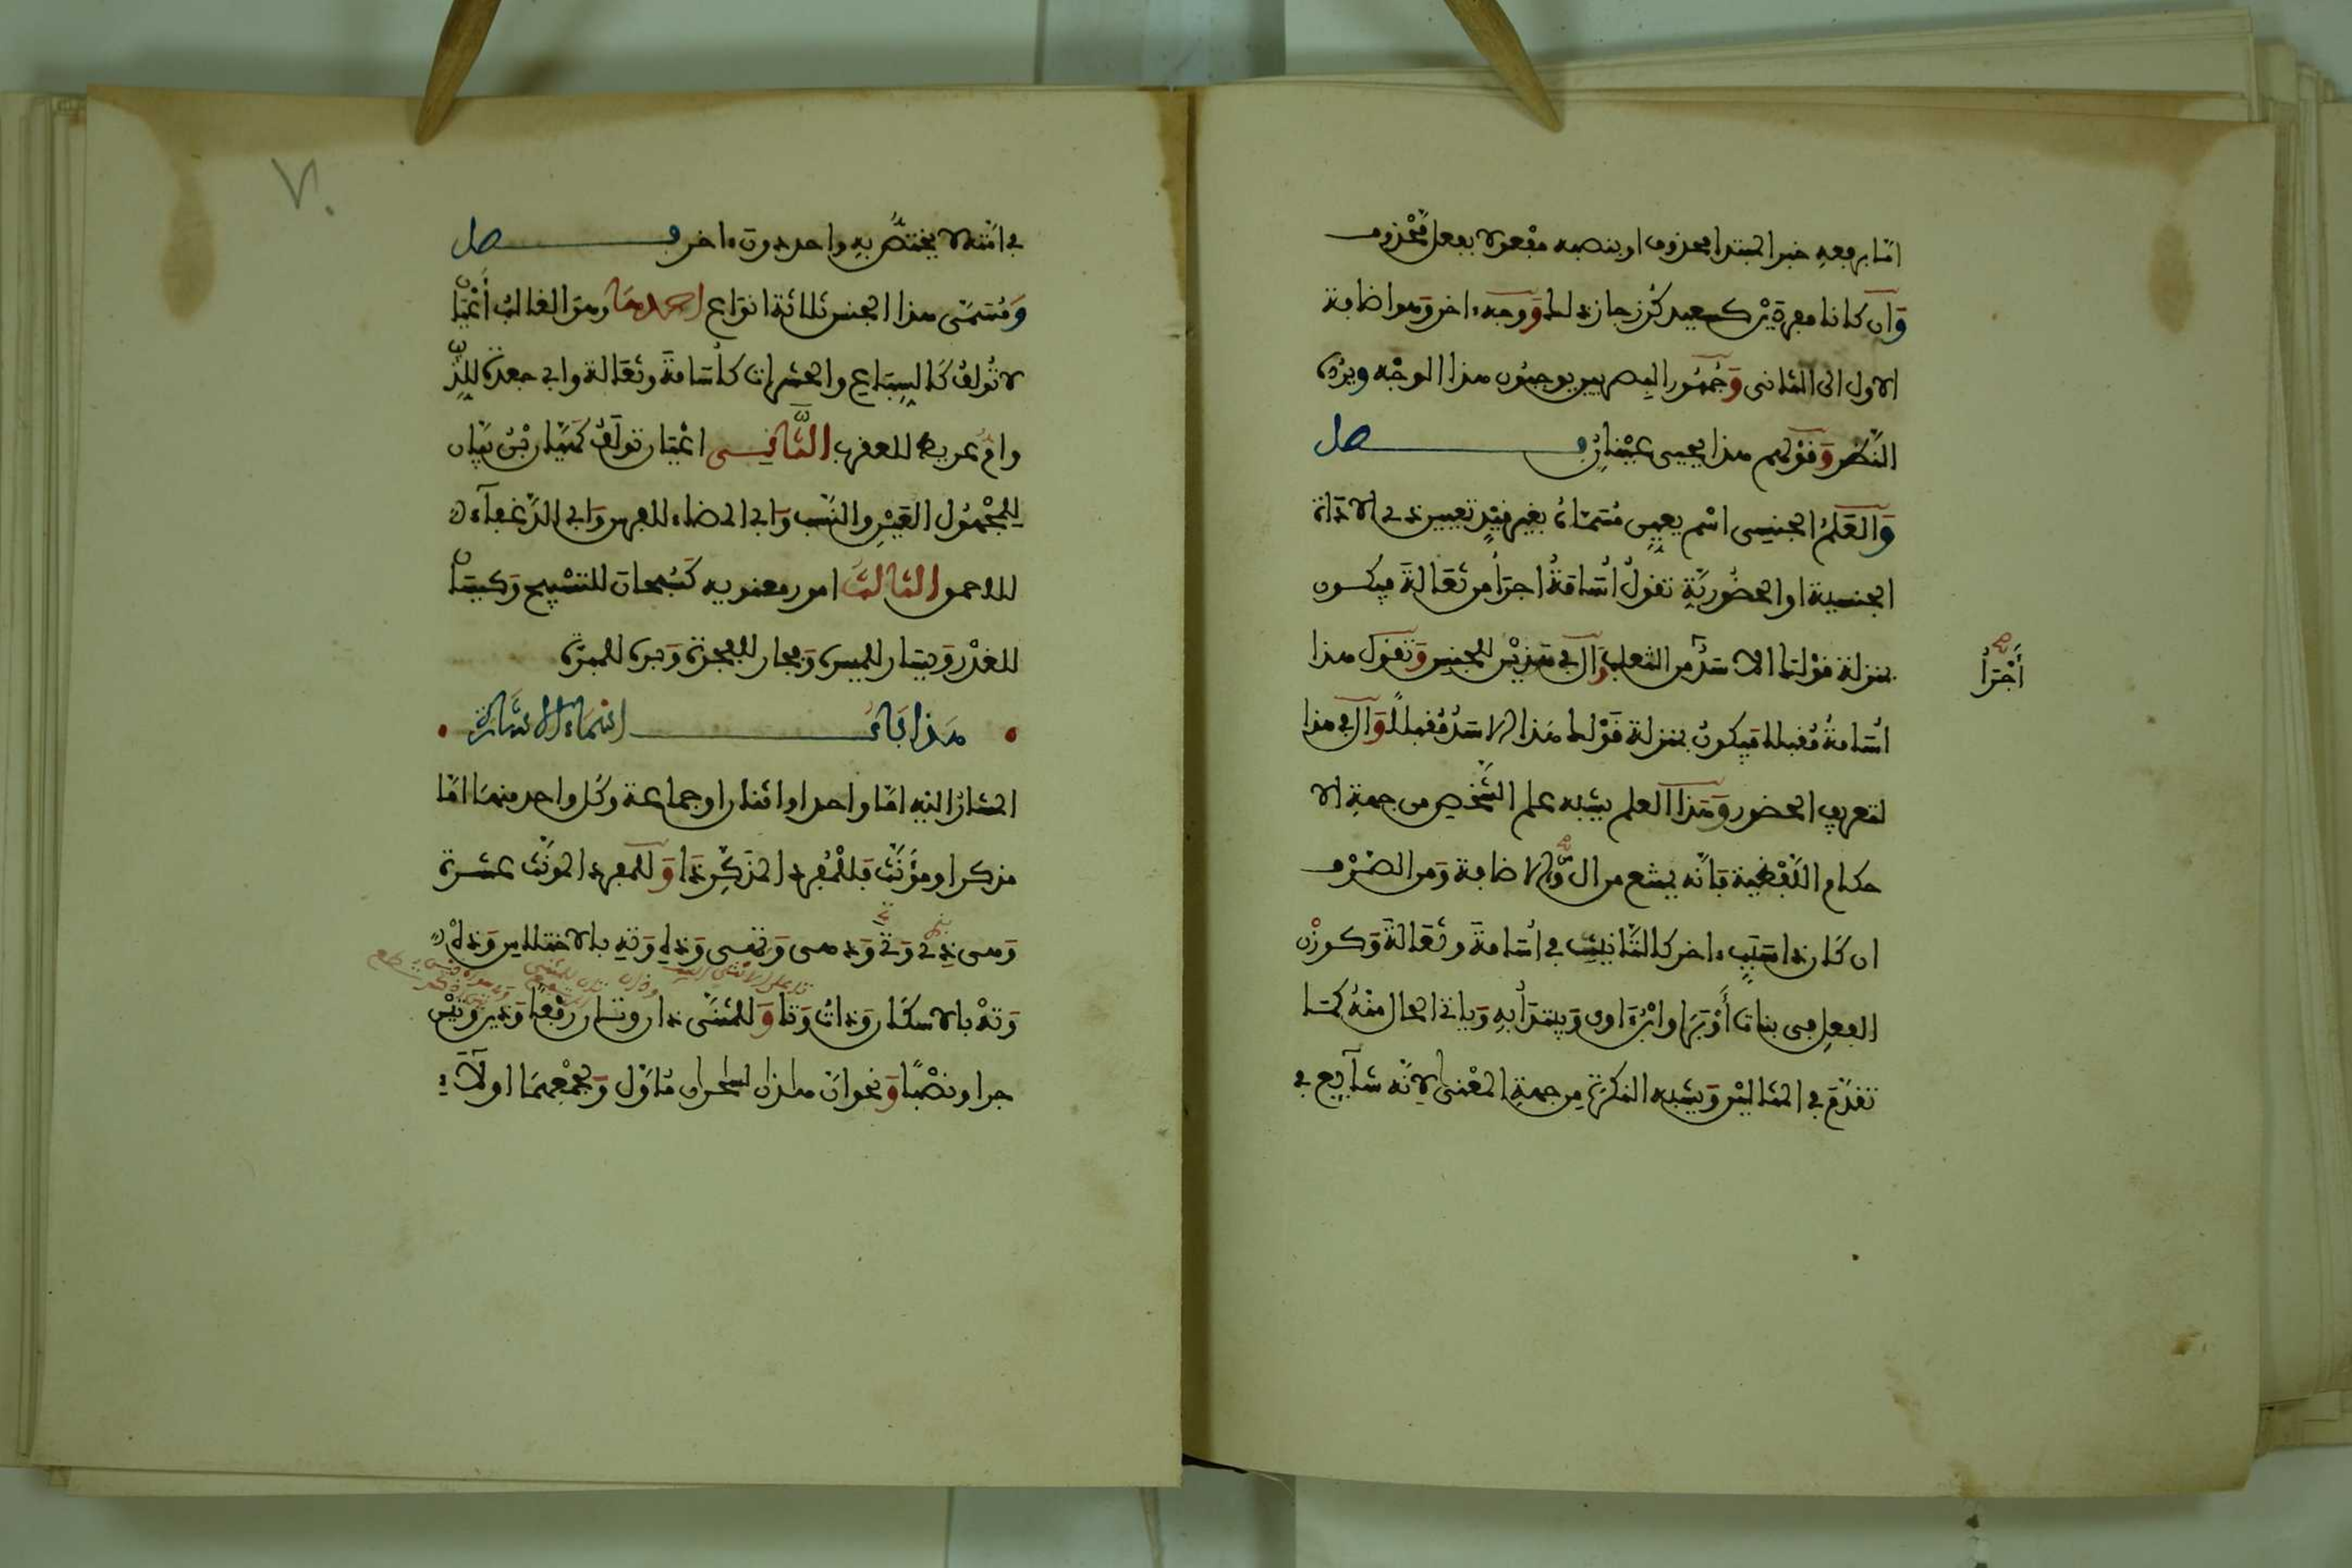 اما برفعه خبرا لمبتدا محذوف او بنصبه مفعولا بفعل مَّحْذوف
وَان كانا مفردَيْن كسعيد كُرْز جاز ذلك وَوجه ءاخر وَهو اضافة
الاول الى الثانى وَجُمهُور البِصريين يوجبُون هذا الوجْه ويرُدّه
النَّظر وَقوْلهم هذا يحيى عيْنانِ فـــــــصل
وَالعَلَمُ الجنسِى اسْم يعيِن مُسَمَّاهُ بغير قيْدٍ تعيين ذى الاداة
الجنسية او الحضُوريّةِ تقولُ أُسَامَةُ اجرَأُ من ثُعَالةَ فيكون
بمنزلة قوْلك الاسَدُ اجرأ من الثعلب وَال في هَذيْن للجنسِ وَتقول هذا
أَجْرَأُ
اُسَامةُ مُقبلا فيكونُ بمنزلة قَوْلك هَذا الاسَدُ مُقبلًا وَال في هذا
لتعريف الحضور وَهَذا العلم يشبه علم الشَّخْصِ من جهةِ الا
حكام اللّفْظية فَانّه يمتنع من ال وَالاضافة وَمن الصَّرْف
ان كَان ذا سَبَبٍ ءاخر كالتَّانيث في اُسَامةَ وثُعَالةَ وَكوزْن
الفعلِ في بنات أَوْبَرَ وابْن ءَاوى وَيبتدَأُ بهِ وَياتى الحال منْهُ كمَا
تقدَّمَ في المثاليْن وَيشبه النكرَة مِن جهةِ المعْنى لِانّه شآئِع في
في امّته لا يختصُّ بهِ واحد دون ءاخر فـــــــصل
وَمُسَمَّى هذا الجنس ثلاثة انوَاع احدهَا وهوَ الغالبُ أَعْيَان
لا تُولفُ كَالسِبَاع والحشرات كاُسَامةَ وثُعَالة وابى جعدَة للذِّئب
وامِّ عريط للعقرب الثَّانِى اعْيَان تولَفُ كهَيَّان بْنُ بَيَّان
للمجْهُول العَيْنِ والنَّسب وَابى المضاء للفرس وَابى الدَّغفآء
للاحمق الثَّالثُ امور معنويه كسُبحان للتسْبيح وَكيسَان
للغدْر وَيسَار للميسرة وَفجار للفجرة وَبرة للمبرَّة
هَذا بَابُ ـــــــ اسْمَاء الاشَارة
المشار اليْه امّا واحد او اثنان او جماعة وَكُل واحد منهمَا امّا
مذكر او مؤنَّث فَللمُفرد المذكِّر ذَا وَللمفرد المونّث عشرة
وَهى ذِى وَتى وَذهى وَتهى وَذهِ وَتهِ بالاختلاس وَذهْ
وَتهْ بالاسكان وَذاتُ وَتا وَللمُثنَّى ذان وتان رفْعًا وَذين وَتيْن
جرا ونصْبًا وَنحو ان هاذان لساحران مُاوَّل وَلجمْعِهمَا اولَآءِ